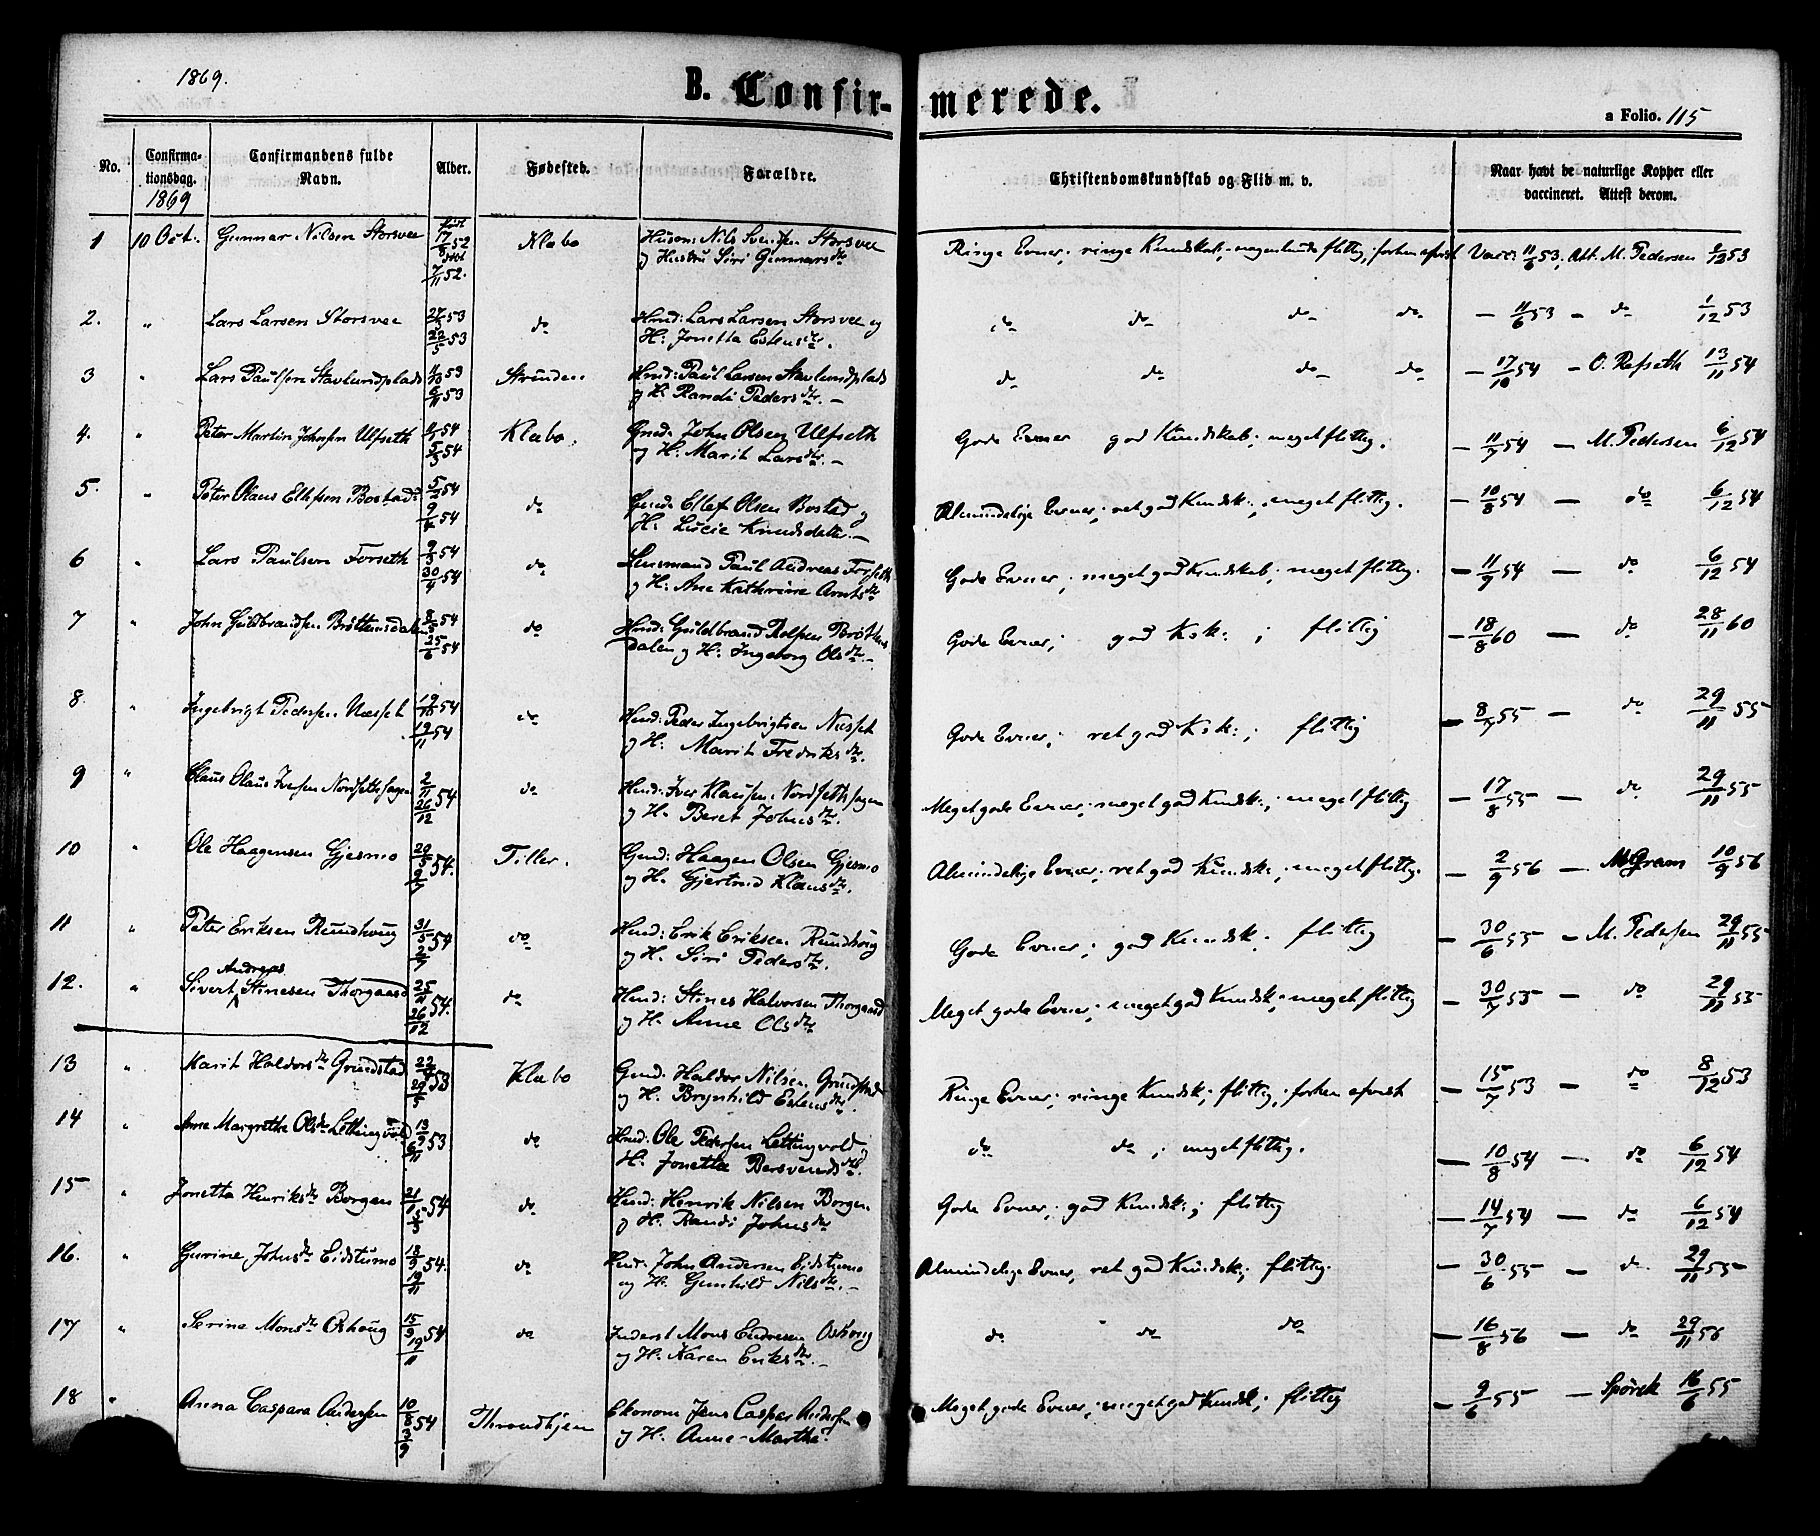 1869.
B. Confirmerede.
a Folio. 115
No.
Confirmationsdag.
1869
Confirmandens fulde Navn.
Alder.
Fødested.
Forældre.
Christendomskundskab og Flid m. v.
Naar havt de naturlige Kopper eller vaccineret. Attest derom.
1 10 Oct. Gunnar Nilsen Storsvee født 17/8 52 døbt 7/11 52. Klæbo Husm: Nils Svendsen Storsvee
og Hustru Siri Gunnarsdtr Ringe Evner; ringe Kundskab; nogenlunde flittig; forhen afvist Vacc: 11/6 53; Att. M. Pedersen 1/12 53
2. " Lars Larsen Storsvee 53 22/5 53 do Hmd: Lars Larsen Storsvee og
H: Jonetta Estensdtr. do do do do - 11/6 53 - do 1/12 53
3 " Lars Paulsen Stavlundplads 53 6/11 53 Strinden. Hmd: Paul Larsen Stavlundplads
og H: Randi Pedersdtr. - do do do do - 17/10 54 - O. Refseth 13/11 54
4. " Peter Martin Johnsen Ulfseth 54 5/3 54 Klæbo. Gmd: John Olsen Ulfseth
og H: Marit Larsdtr. - Gode Evner god Kundskab; meget flittig. - 11/7 54 - M. Pedersen 6/12 54
5. " Peter Olaus Ellefsen Bostad 54 54 do Gmd: Ellef Olsen Bostad og
H: Lucie Knudsdatter. - Almindelige Evner; ret god Kundsk:; meget flittig. - 10/8 54 - do 6/12 54
6 " Lars Paulsen Forseth 9/3 54 30/4 54 do Lensmand Paul Andreas Forseth
og H: Ane Kathrine Arntsdtr Gode Evner; meget god Kundskab; meget flittig. - 11/7 54 - do 6/12 54
7 " John Guldbrandsen Bröttemsdalen 54 25/6 54 do Hmd: Guldbrand Rolfsen Bröttems
Dalen og H: Ingeborg Olsdtr. - Gode Evner; god Ksk:; flittig - 18/8 60 - do 28/11 60
8. " Ingebrigt Pedersen Næsset 19/10 54 19/11 54 do Hmd: Peder Ingebrigtsen Næsset
og H: Marit Fredriksdtr. Gode Evner; ret god Ksk:; flittig - 8/7 55 - do 29/11 55
9 " Claus Olaus Iversen Nordsethhagen 2/11 26/12 54. do Hmd: Iver Klausen Nordsethhagen
og H. Beret Johnsdtr. Meget gode Evner; meget god Kundsk:; meget flittig - 17/8 55 - do 29/11 55
10 " Ole Haagensen Gjesmo 29/5 9/7 54. Tiller. Gmd: Haagen Olsen Gjesmo
og H. Gjertrud Klausdtr. Almindelige Evner; ret god Kundsk:; meget flittig. - 2/9 56 - M. Gram 10/9 56
11 " Peter Eriksen Rundhoug 31/5 2/7 54 do Hmd: Erik Eriksen Rundhoug
og H. Siri Pedersdtr. Gode Evner; god Kundsk; flittig - 30/6 55 - M. Pedersen 29/11 55
12. " Sivert Andreas Stinesen Thorgaard 25/11 26/12 54. do Hmd: Stines Halvorsen Thorgaard
og H. Anne Olsdtr Meget gode Evner; meget god Kundsk; meget flittig - 30/7 55 - do 29/11 55
13 " Marit Haldorsdtr Grundstad 29/5 53 Klæbo Gmd: Haldor Nilsen Grundstad
og H. Brynhild Estensdtr. Ringe Evner; ringe Kundsk; flittig; forhen afvist - 15/7 53 - do 8/12 53
14 " Anne Margrethe Olsdtr Lettingvold 13/9 6/11 53 do Hmd: Ole Pedersen Lettingvold
H. Jonetta Bersvendsdtr. do do; meget flittig. - 10/8 54 - do 6/12 54
15 " Jonetta Henriksdtr Borgen 21/1 15/3 54. do Hmd: Henrik Nilsen Borgen
og H. Randi Johnsdtr Gode Evner; god Kundsk:; flittig - 14/7 54 - do 6/12 54
16. " Gurine Johnsdtr Eidstumo 18/9 19/11 54. do Hmd: John Andersen Eidstumo
og H. Gunhild Nilsdtr. - Almindelige Evner, ret god Kundsk; flittig. - 30/6 55 - do 29/11 55
17 " Serine Monsdtr Oshoug 15/9 19/11 54 do Inderst Mons Endresen Oshoug
og H. Karen Eriksdtr. - do do do - 16/8 56 - do 29/11 56
18 " Anna Caspara Andersen 10/8 3/9 54 Throndhjem Ekonom Jens Casper Andersen
og H. Anne-Martha. Meget gode Evner; meget god Kundsk; flittig - 9/6 55 - Spörck 16/6 55